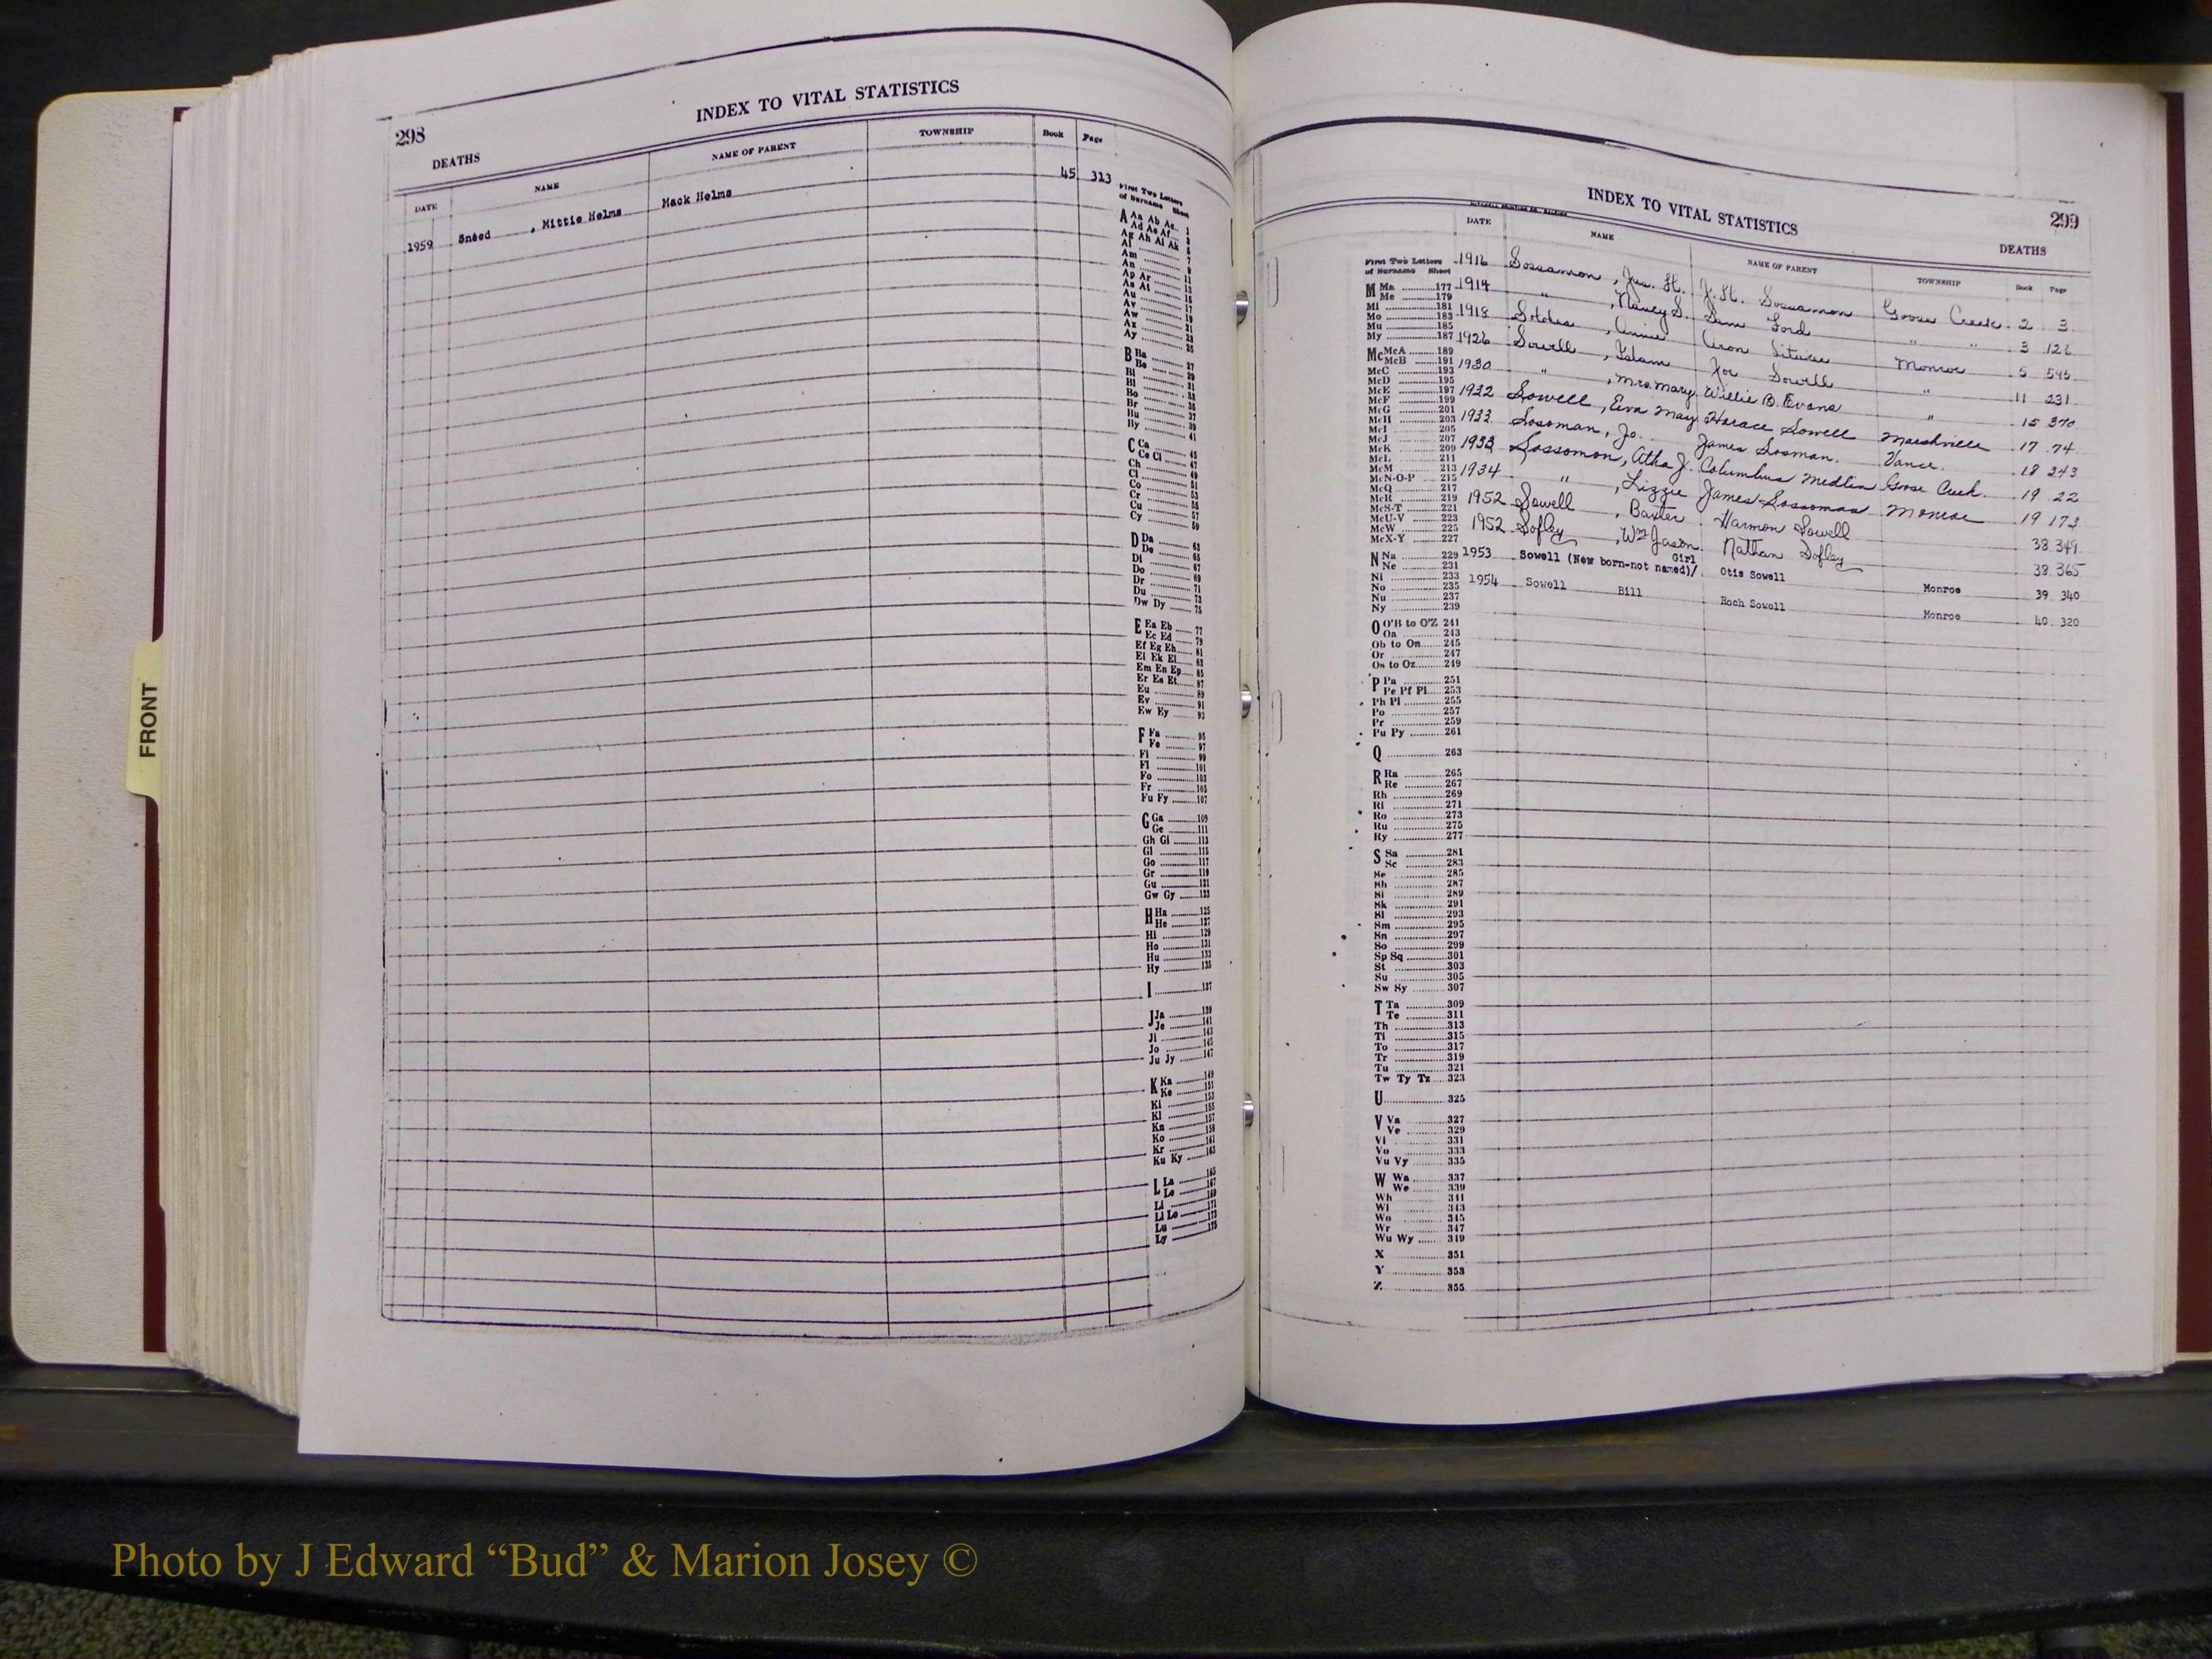 298
INDEX TO VITAL STATISTICS
DEATHS
DATE NAME NAME OF PARENT TOWNSHIP Book Page
1959 Sneed , Mittie Helms Mack Helms 45 313
First Two Letters
of Surname Sheet
A Aa Ab Ac 1
Ad Ae Af 3
Ag Ah Ai Ak 5
Al 7
Am 9
An 11
Ap Ar 13
As At 15
Au 17
Av 19
Aw 21
Ax 23
Ay 25
B Ba 27
Be 29
Bi 31
Bl 33
Bo 35
Br 37
Bu 39
By 41
C Ca 45
Ce Ci 47
Ch 49
Cl 51
Co 53
Cr 55
Cu 57
Cy 59
D Da 63
De 65
Di 67
Do 69
Dr 71
Du 73
Dw Dy 75
E Ea Eb 77
Ec Ed 79
Ef Eg Eh 81
Ei Ek El 83
Em En Ep 85
Er Es Et 87
Eu 89
Ev 91
Ew Ey 93
F Fa 95
Fe 97
Fi 99
Fl 101
Fo 103
Fr 105
Fu Fy 107
G Ga 109
Ge 111
Gh Gi 113
Gl 115
Go 117
Gr 119
Gu 121
Gw Gy 123
H Ha 125
He 127
Hi 129
Ho 131
Hu 133
Hy 135
I 137
J Ja 139
Je 141
Ji 143
Jo 145
Ju Jy 147
K Ka 149
Ke 151
Ki 153
Kl 155
Kn 157
Ko 159
Kr 161
Ku Ky 163
L La 165
Le 167
Li 169
Ll Lo 171
Lu 173
Ly 175
INDEX TO VITAL STATISTICS
299
DEATHS
DATE NAME NAME OF PARENT TOWNSHIP Book Page
1916 Sossamon , Jas. H. J. H. Sossamon Goose Creek 2 3
1914 " , Nancy S. Sam Ford " " 3 126
1918 , Annie Aron Monroe 5 545
1926 Sowell , Joe Sowell " 11 231
1930 " , Mrs. Mary Willie B. Evans " 15 370
1932 Sowell , Eva May Horace Sowell Marshville 17 74
1933 Sosoman , Jo. James Sosman. Vance. 18 243
1933 Sossomon , Atha J. Columbus Medlin Goose Creek. 19 22
1934 " , Lizzie James Sossoman Monroe 19 173
1952 Sowell , Baxter Harmon Sowell 38 349
1952 Sofley , Wm Jason. Nathan Sofley 38 365
1953 Sowell (New born-not named)/ Girl Otis Sowell Monroe 39 340
1954 Sowell Bill Roch Sowell Monroe 40 320
First Two Letters
of Surname Sheet
M Ma 177
Me 179
Mi 181
Mo 183
Mu 185
My 187
Mc McA 189
McB 191
McC 193
McD 195
McE 197
McF 199
McG 201
McH 203
McI 205
McJ 207
McK 209
McL 211
McM 213
McN-O-P 215
McQ 217
McR 219
McS-T 221
McU-V 223
McW 225
McX-Y 227
N Na 229
Ne 231
Ni 233
No 235
Nu 237
Ny 239
O O'B to O'Z 241
Oa 243
Ob to On 245
Or 247
Os to Oz 249
P Pa 251
Pe Pf Pi 253
Ph Pl 255
Po 257
Pr 259
Pu Py 261
Q 263
R Ra 265
Re 267
Rh 269
Ri 271
Ro 273
Ru 275
Ry 277
S Sa 281
Sc 283
Se 285
Sh 287
Si 289
Sk 291
Sl 293
Sm 295
Sn 297
So 299
Sp Sq 301
St 303
Su 305
Sw Sy 307
T Ta 309
Te 311
Th 313
Ti 315
To 317
Tr 319
Tu 321
Tw Ty Tz 323
U 325
V Va 327
Ve 329
Vi 331
Vo 333
Vu Vy 335
W Wa 337
We 339
Wh 341
Wi 343
Wo 345
Wr 347
Wu Wy 349
X 351
Y 353
Z 355
FRONT
Photo by J Edward “Bud” & Marion Josey ©